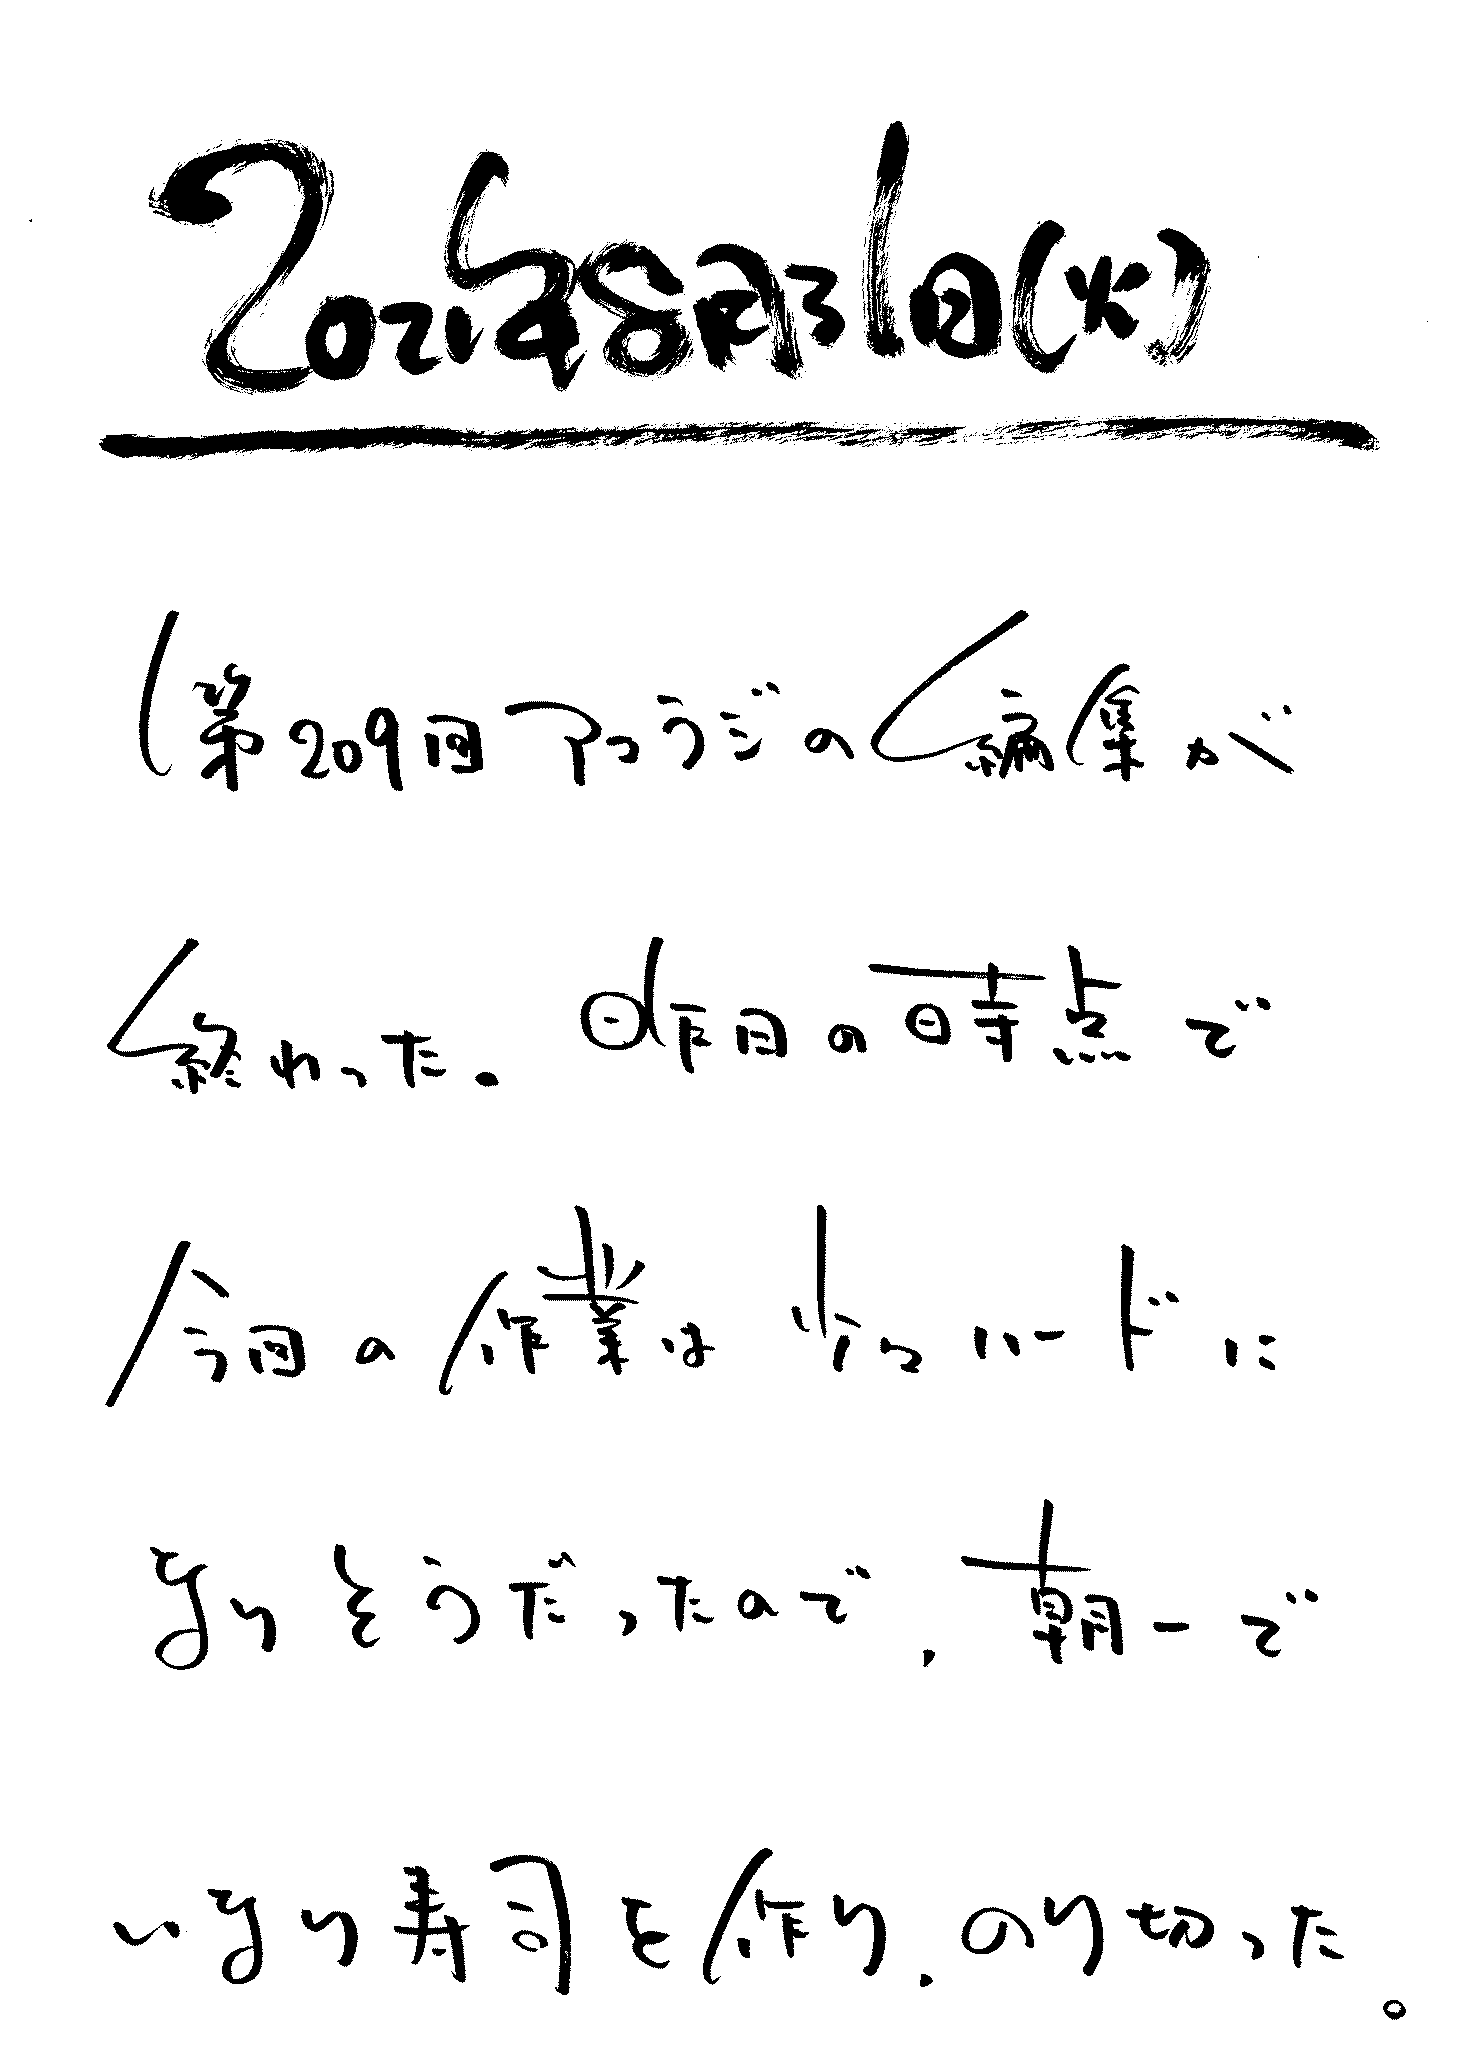 2021年8月31日(火)
第209回アコラジの編集が
終わった。昨日の時点で
今回の作業は少々ハードに
なりそうだったので、朝一で
いなり寿司を作り、のり切った。